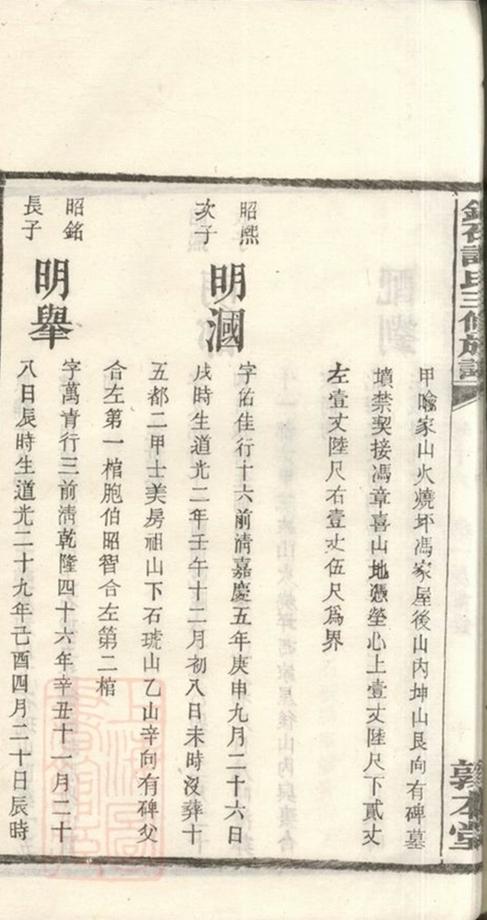 氏三修族譜
敦本堂
甲喻家山火燒坪馮家屋後山內坤山艮向有碑墓
墳禁契接馮章喜山地憑塋心上壹丈陸尺下貳丈
左壹丈陸尺右壹丈伍尺爲界
昭熙
次子
明漍
字佑佳行十六前清嘉慶五年庚申九月二十六日
戌時生道光二年壬午十二月初八日未時沒葬十
五都二甲士美房祖山下石琥山乙山辛向有碑父
合左第一棺胞伯昭智合左第二棺
昭銘
長子
明舉
字萬青行三前清乾隆四十六年辛丑十一月二十
八日辰時生道光二十九年己酉四月二十日辰時